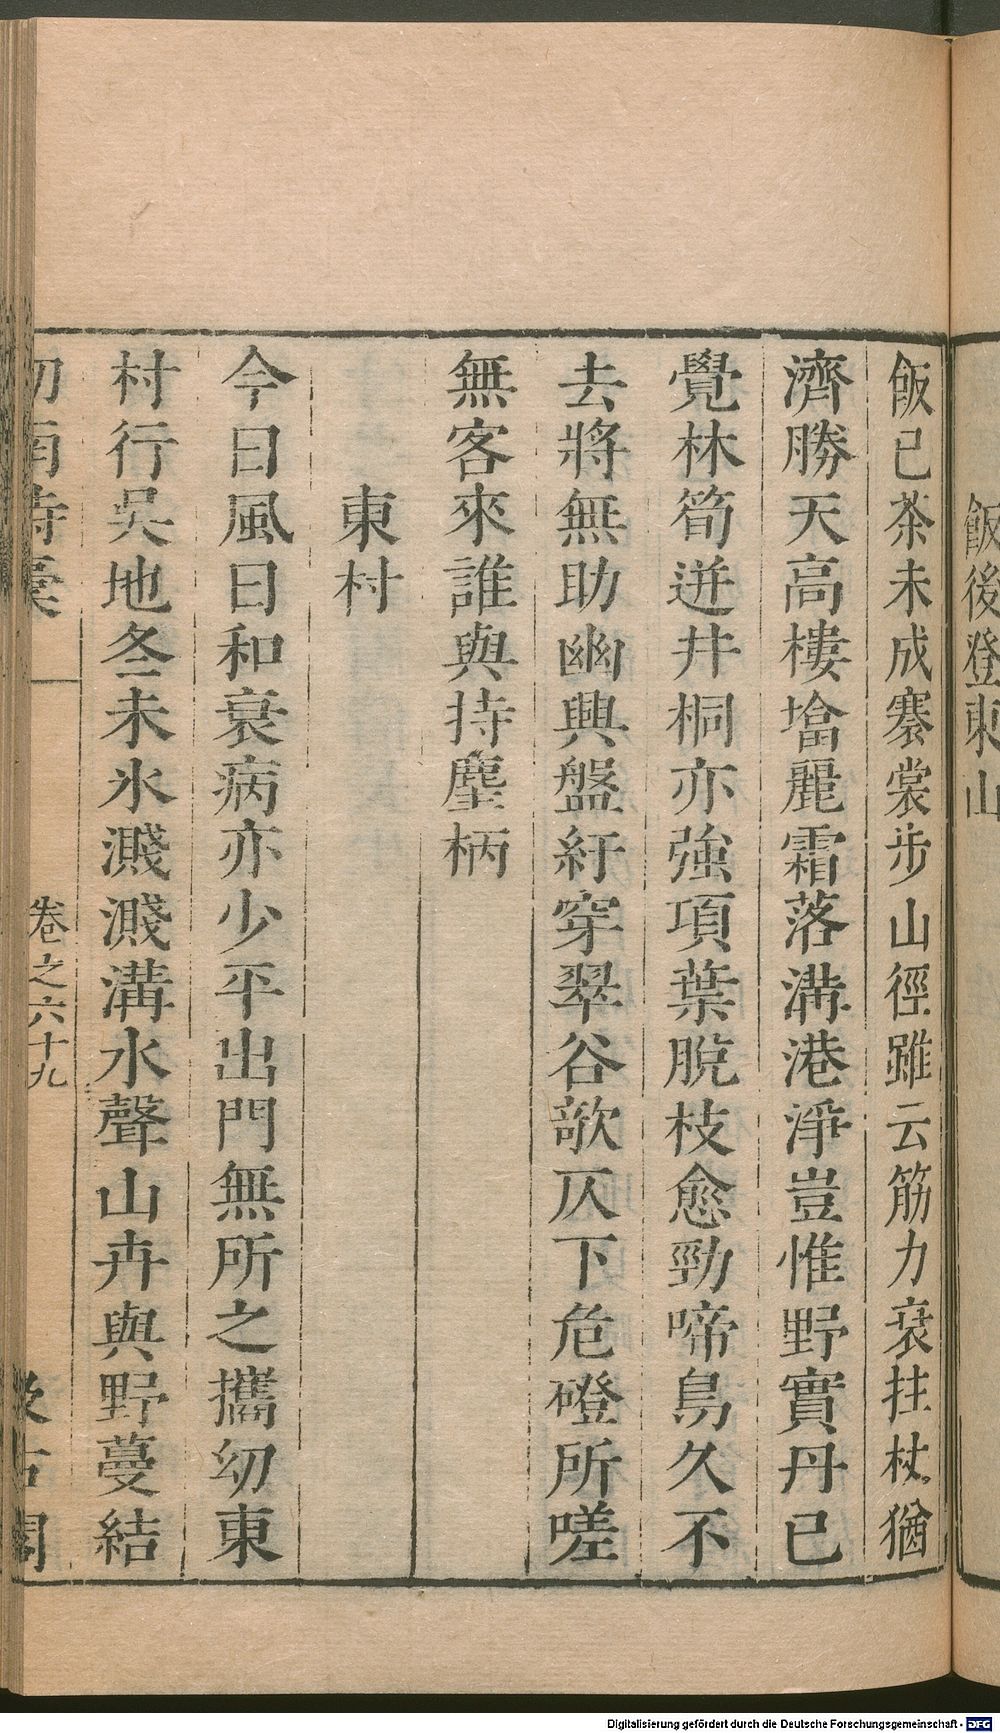 飯後登東山
飯已茶未成褰裳步山徑雖云筋力衰拄杖猶
濟勝天高樓墖麗霜落溝港淨豈惟野實丹已
覺林筍迸井桐亦強項葉脫枝愈勁啼鳥久不
去將無助幽興盤紆穿翠谷欹仄下危磴所嗟
無客來誰與持麈柄
東村
今日風日和衰病亦少平出門無所之攜幼東
村行吳地冬未氷濺濺溝水聲山卉與野蔓結
劎南詩稾
卷之六十九
汲古閣
Digitalisierung gefördert durch die Deutsche Forschungsgemeinschaft - DFG